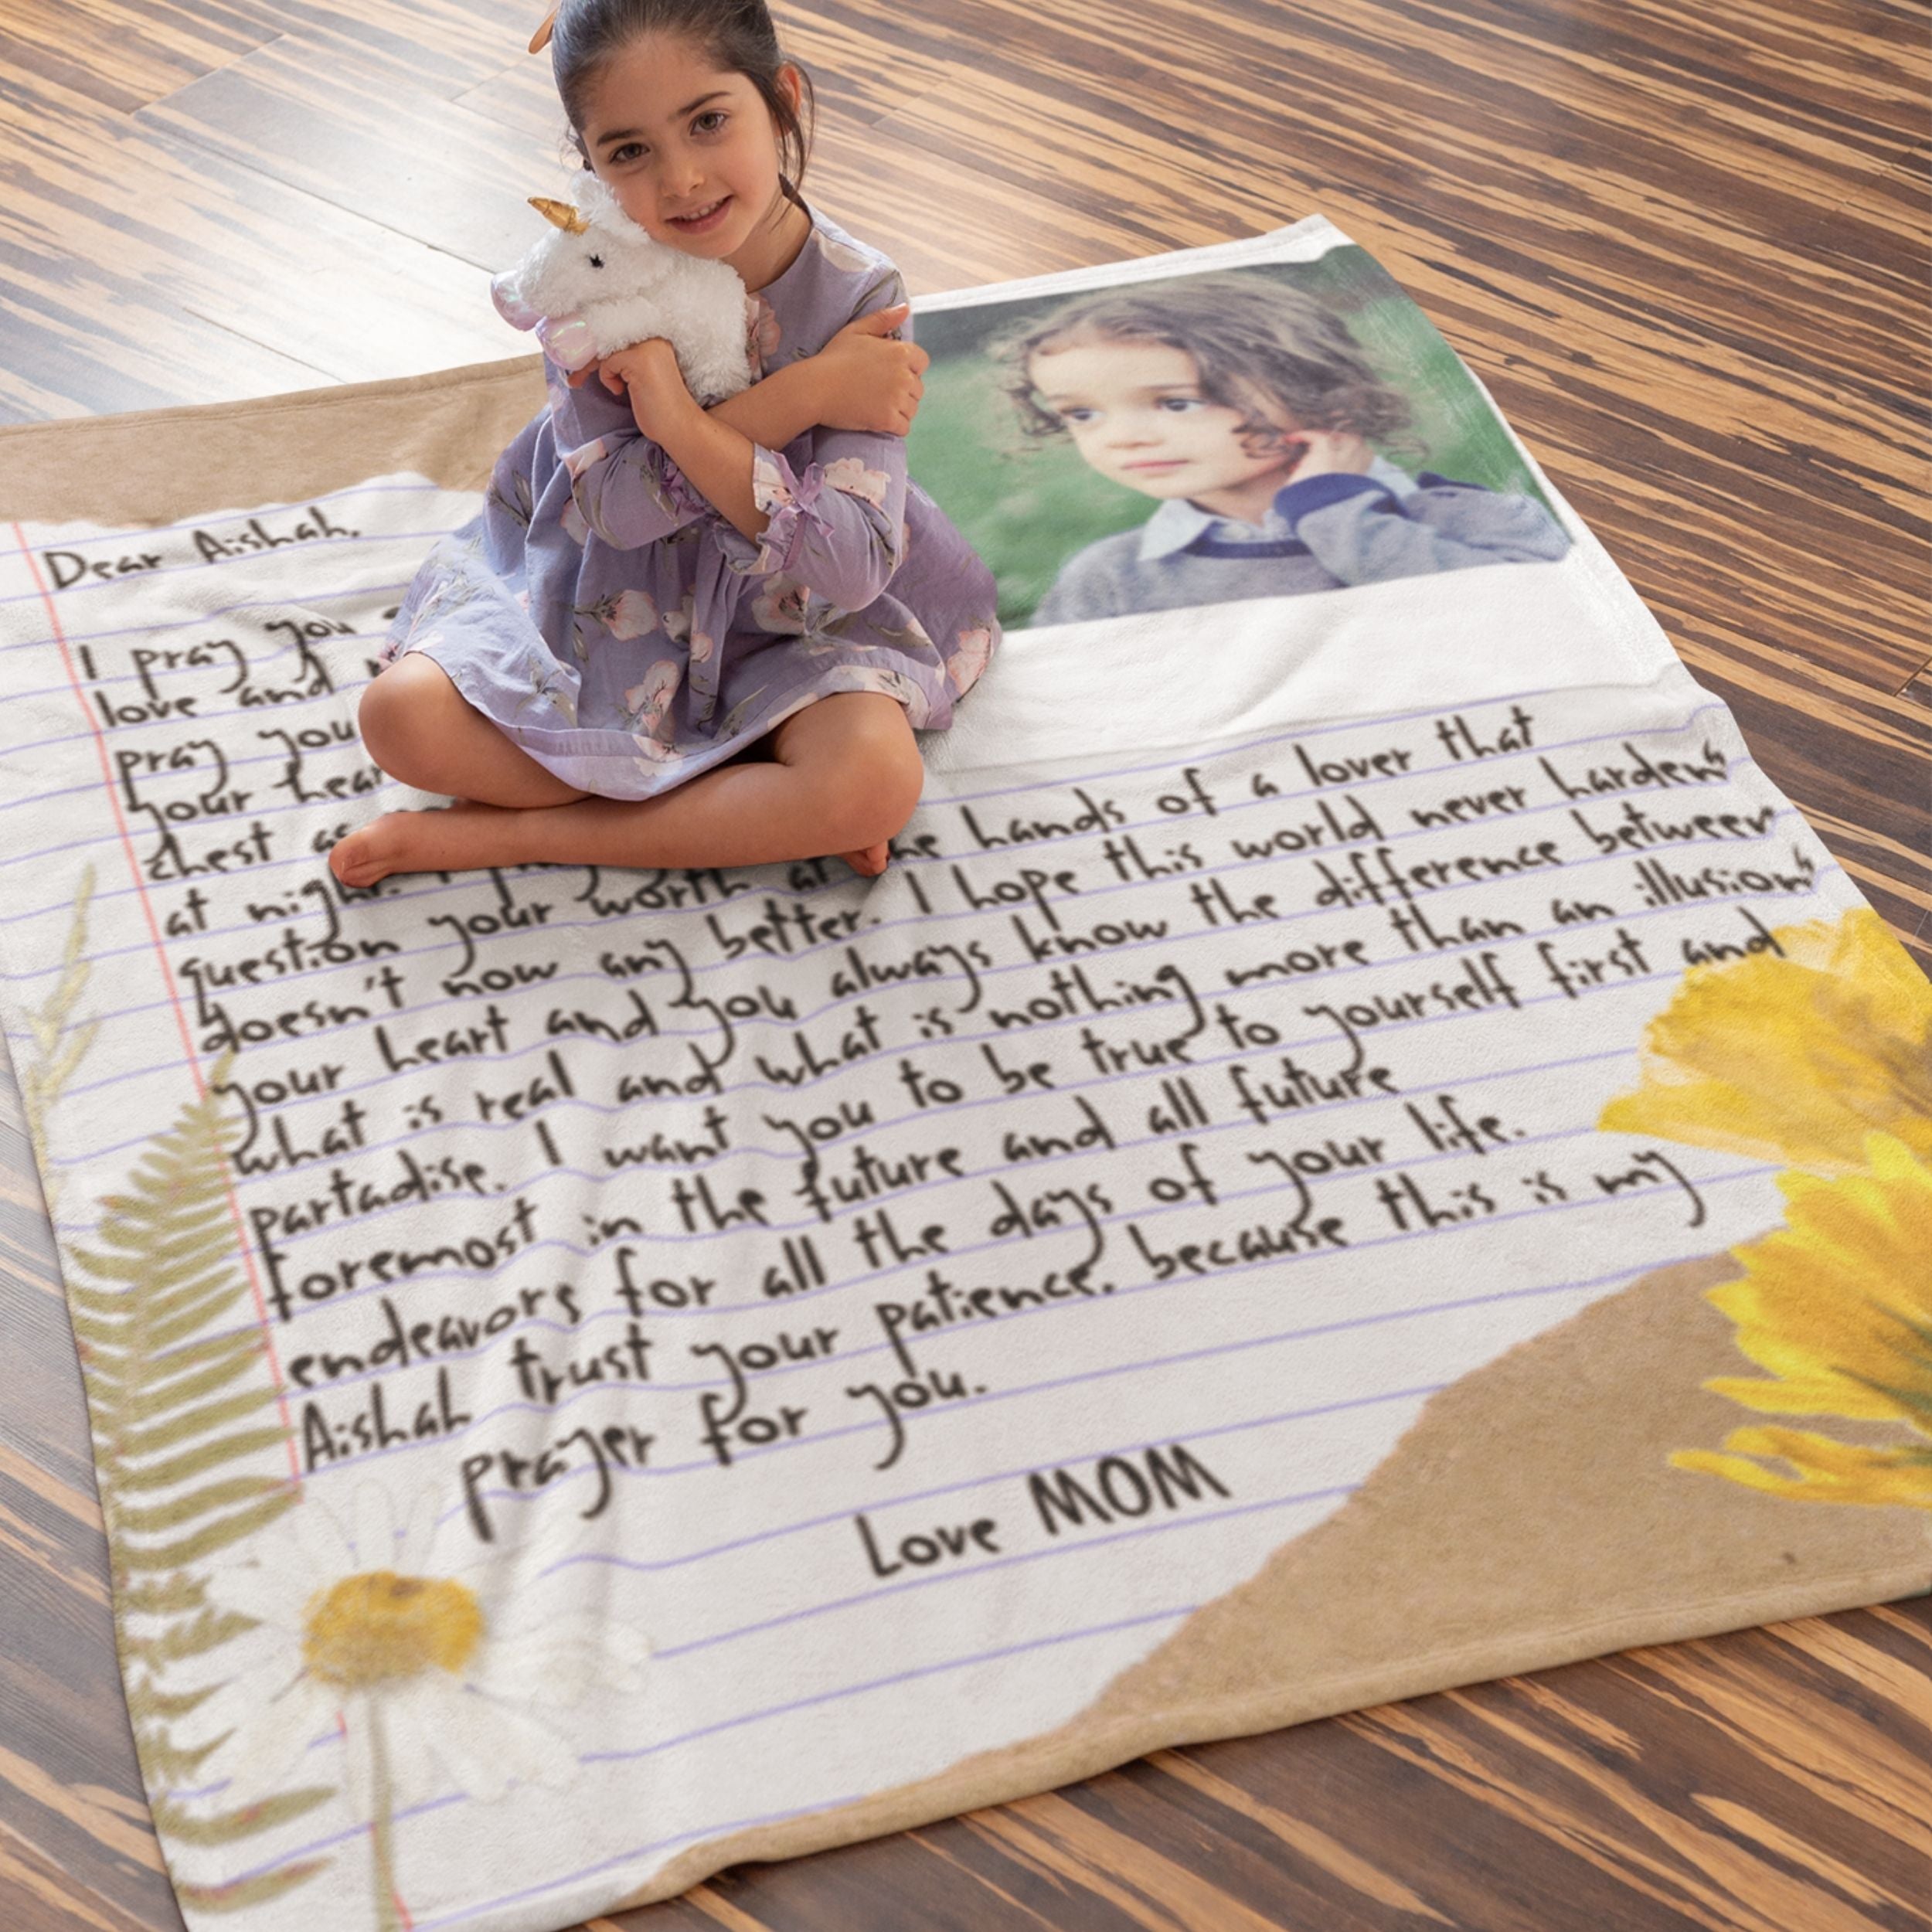 Dear Aishah,
I pray you
love and
pray you
your hear
chest as
at night. I
hands of a lover that
question your worth at
I hope this world never harden's
doesn't now any better.
your heart and you always know the difference between
what is real and what is nothing more than an illusion's
partadise. I want you to be true to yourself first and
foremost in the future and all future
endeavors for all the days of your life.
Aishah trust your patience. because this is my
prayer for you.
Love MOM